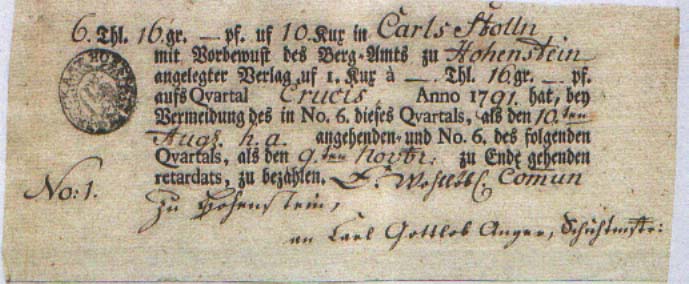 6. Thl. 16 gr. — pf. uf 10. Kux in Carls Stolln
mit Vorbewust des Berg-Amts zu Hohenstein
angelegter Verlag, uf 1. Kux à — Thl. 16 gr. — pf.
aufs Qvartal Crucis, Anno 1791. hat, bey
Vermeidung des in No. 6. dieses Qvartals, als den 10.ten
Aug. h. a. angehenden- und No. 6. des folgenden
Qvartals, als den 9.ten Novbr: zu Ende gehenden
retardats, zu bezahlen. E. Wohllöbl. Comun
No: 1. zu Hohenstein,
an Carl Gottlob Anger, Schichtmstr: